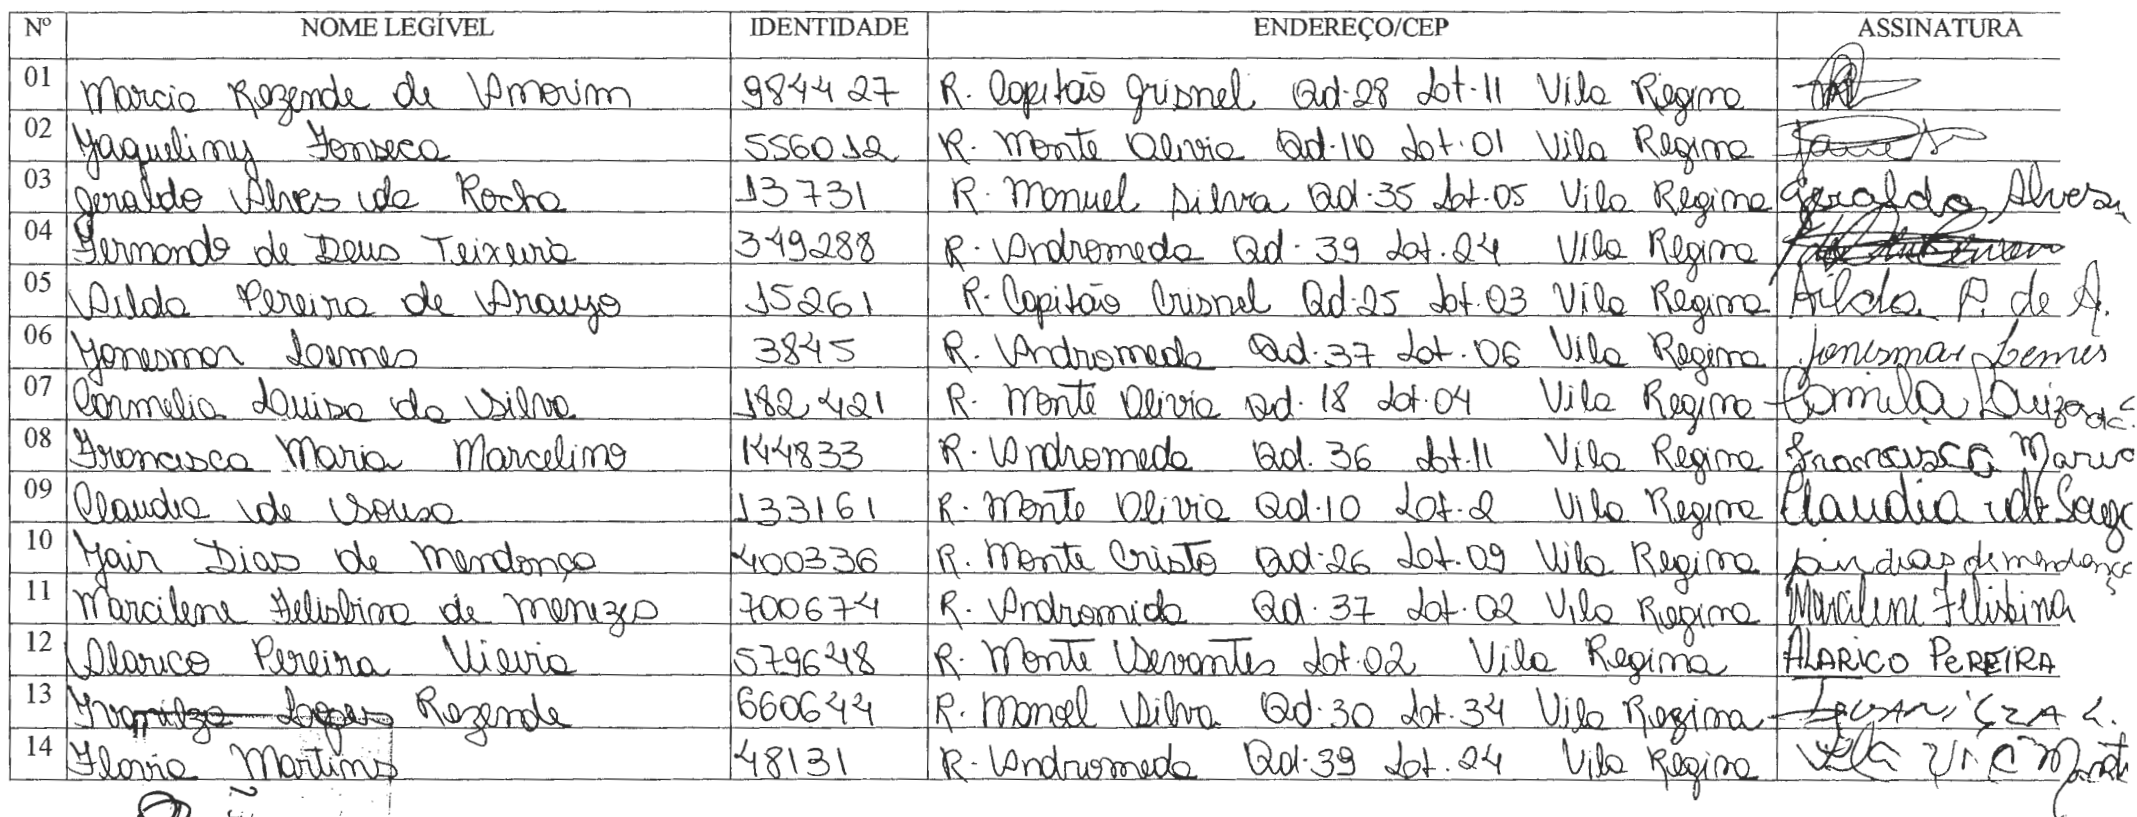 Nº NOME LEGÍVEL IDENTIDADE ENDEREÇO/CEP ASSINATURA
01 Marcia Rezende de Amorim 984427 R. Capitão Grisnel Qd-28 Lot-11 Vila Regina
02 Jaqueliny Fonseca 556012 R. Monte Olivia Qd-10 Lot-01 Vila Regina
03 Geraldo Alves da Rocha 13731 R. Manuel Silva Qd-35 Lot-05 Vila Regina Geraldo Alves
04 Fernando de Deus Teixeira 349288 R. Andromeda Qd-39 Lot-24 Vila Regina
05 Ailda Pereira de Araujo 15261 R. Capitão Crisnel Qd-25 Lot-03 Vila Regina Ailda P. de A.
06 Jonesmar Lemes 3845 R. Andromeda Qd-37 Lot-06 Vila Regina Jonismar Lemes
07 Carmelia Luisa da Silva 182421 R. Monte Olivia Qd-18 Lot-04 Vila Regina Camila Luiza
08 Francisca Maria Marcelino 144833 R. Andromeda Qd. 36 Lot-11 Vila Regina Francisca Maria
09 Claudia de Sousa 133161 R. Monte Olivia Qd-10 Lot-2 Vila Regina Claudia de
10 Jair Dias de Mendonça 400336 R. Monte Cristo Qd-26 Lot-09 Vila Regina Jair dias de mendonça
11 Marcilene Felisbina de Menezes 700674 R. Andromida Qd-37 Lot-02 Vila Regina Marcilene Felisbina
12 Alarico Pereira Vieira 579648 R. Monte Lot-02 Vila Regina ALARICO PEREIRA
13 Lopes Rezende 660644 R. Manoel Silva Qd-30 Lot-34 Vila Regina
14 Flavia Martins 48131 R. Andromeda Qd-39 Lot-24 Vila Regina